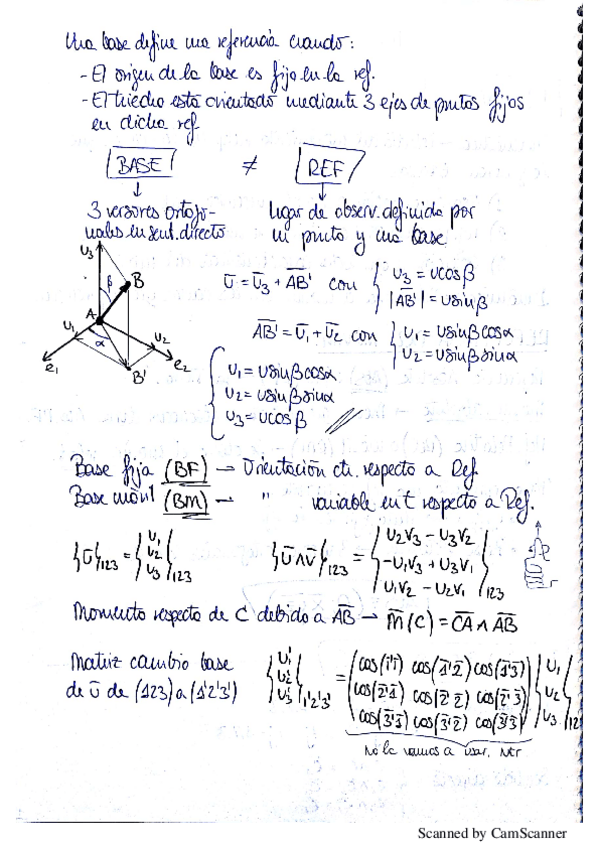 Una base define una referencia cuando:
- El origen de la base es fijo en la ref.
- El triedro está orientado mediante 3 ejes de puntos fijos
en dicha ref
BASE ≠ REF
3 versores ortogo-
nales en sent. directo
lugar de observ. definida por
un punto y una base
U3 β B A U1 α U2 e1 B' e2
Ū = Ū3 + AB' con { U3 = U cos β
|AB'| = U sin β
AB' = Ū1 + Ū2 con { U1 = U sin β cos α
U2 = U sin β sin α
{ U1 = U sin β cos α
U2 = U sin β sin α
U3 = U cos β
Base fija (BF) → Orientación ctc. respecto a Ref.
Base móvil (BM) → " variable en t respecto a Ref.
{Ū}123 = { U1 U2 U3 }123
{Ū ∧ V̄}123 = { U2V3 - U3V2
-U1V3 + U3V1
U1V2 - U2V1 }123
Momento respecto de C debido a AB → M̄(C) = CA ∧ AB
Matriz cambio base
de ū de (123) a (1'2'3')
{ U1' U2' U3' }1'2'3' = ( cos(1̄'1̄) cos(1̄'2̄) cos(1̄'3̄)
cos(2̄'1̄) cos(2̄'2̄) cos(2̄'3̄)
cos(3̄'1̄) cos(3̄'2̄) cos(3̄'3̄) ) { U1 U2 U3 }12
No la vamos a usar.
Scanned by CamScanner